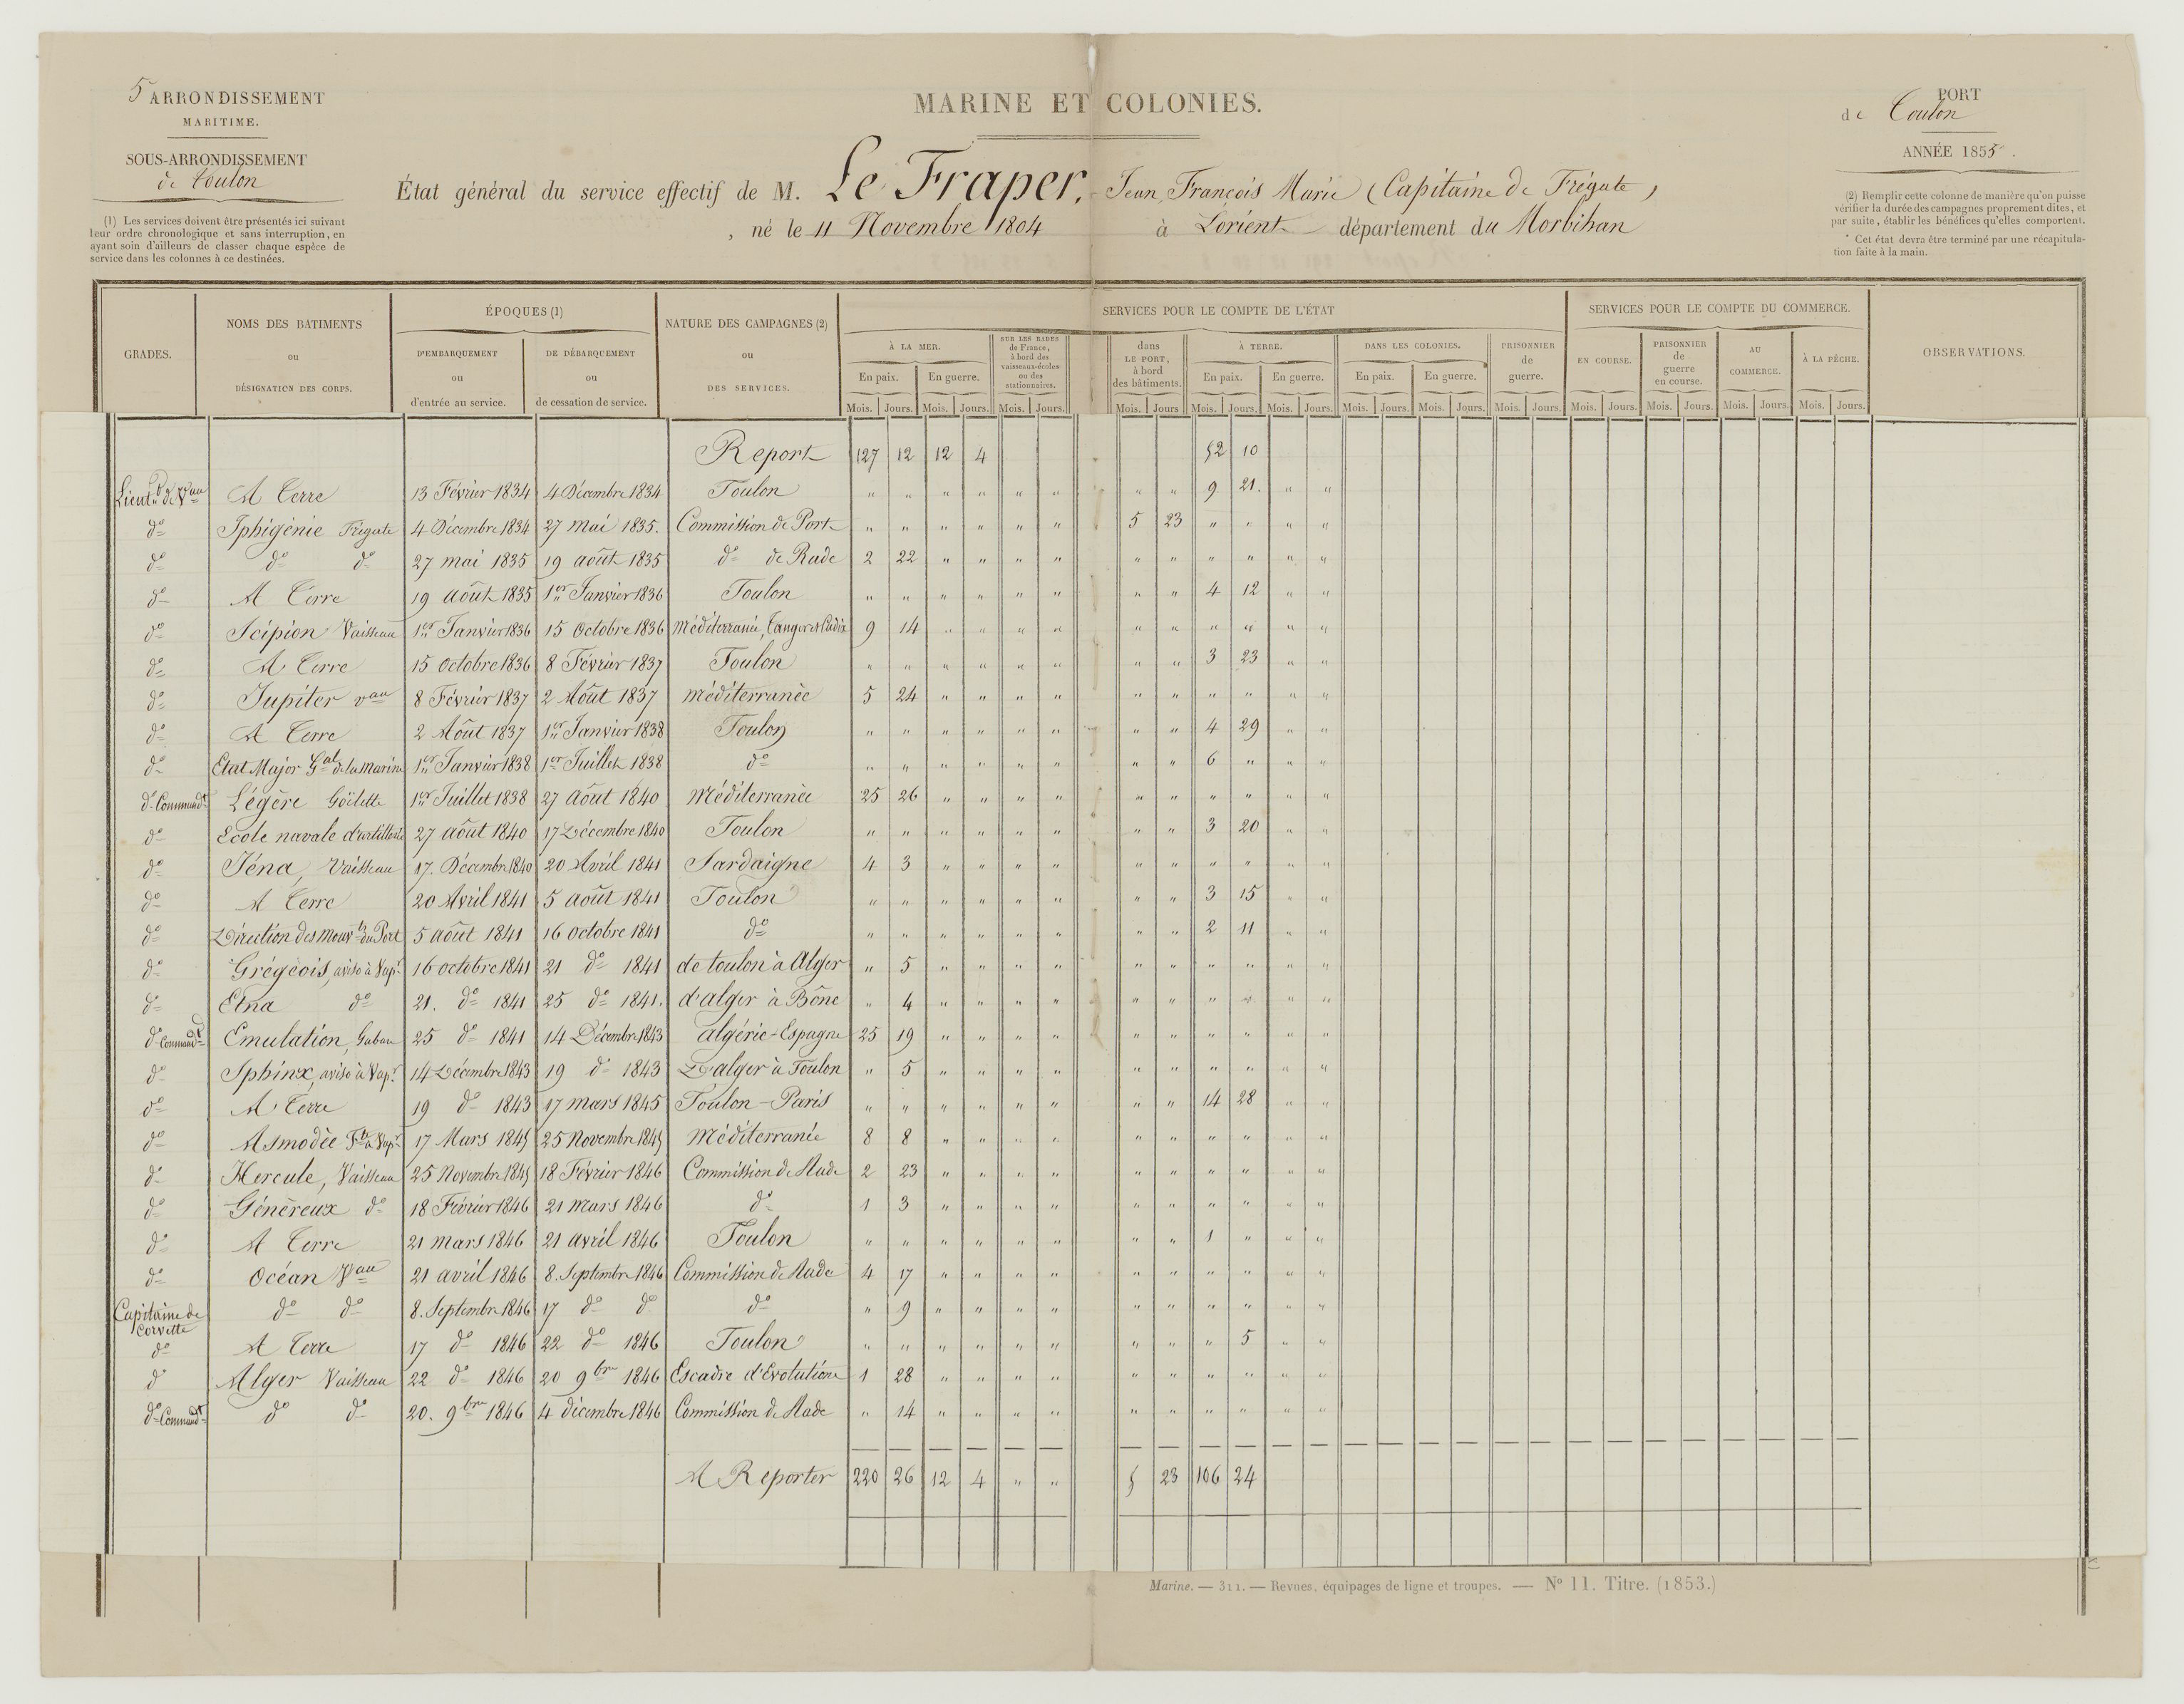 5 ARRONDISSEMENT
MARITIME.
SOUS-ARRONDISSEMENT
de toulon
(1) Les services doivent être présentés ici suivant
leur ordre chronologique et sans interruption, en
ayant soin d'ailleurs de classer chaque espèce de
service dans les colonnes à ce destinées.
MARINE ET COLONIES.
État général du service effectif de M. Le Fraper, Jean François Marie (Capitaine de Frégate)
, né le 11 Novembre 1804 à Lorient département du Morbihan
PORT
de Toulon
ANNÉE 1855.
(2) Remplir cette colonne de manière qu'on puisse
vérifier la durée des campagnes proprement dites, et
par suite, établir les bénéfices qu'elles comportent.
* Cet état devra être terminé par une récapitula-
tion faite à la main.
GRADES.
NOMS DES BATIMENTS
ou
DÉSIGNATION DES CORPS.
ÉPOQUES (1)
D'EMBARQUEMENT
ou
d'entrée au service.
DE DÉBARQUEMENT
ou
de cessation de service.
NATURE DES CAMPAGNES (2)
ou
DES SERVICES.
SERVICES POUR LE COMPTE DE L'ÉTAT
À LA MER.
En paix. En guerre.
SUR LES RADES
de France,
à bord des
vaisseaux-écoles
ou des
stationnaires.
dans
LE PORT,
à bord
des bâtiments.
À TERRE.
En paix. En guerre.
DANS LES COLONIES.
En paix. En guerre.
PRISONNIER
de
guerre.
SERVICES POUR LE COMPTE DU COMMERCE.
EN COURSE.
PRISONNIER
de
guerre
en course.
AU
COMMERCE.
À LA PÊCHE.
OBSERVATIONS.
Mois. Jours. Mois. Jours. Mois. Jours. Mois. Jours Mois. Jours. Mois. Jours. Mois. Jours. Mois. Jours. Mois. Jours. Mois. Jours. Mois. Jours. Mois. Jours. Mois. Jours.
Report 127 12 12 4 52 10
Lieut. de Vau A Terre 13 Février 1834 4 Décembre 1834 Toulon " " " " " " " " 9 21. " "
do Iphigénie Frégate 4 Décembre 1834 27 mai 1835. Commission de Port " " " " " " 5 23 " " " "
do do do 27 mai 1835 19 août 1835 do de Rade 2 22 " " " " " " " " " "
do A Terre 19 août 1835 1er Janvier 1836 Toulon " " " " " " " " 4 12 " "
do Scipion Vaisseau 1er Janvier 1836 15 Octobre 1836 Méditerranée, Tanger et Cadix 9 14 " " " " " " " " " "
do A Terre 15 octobre 1836 8 Février 1837 Toulon " " " " " " " " 3 23 " "
do Jupiter vau 8 Février 1837 2 Août 1837 méditerranée 5 24 " " " " " " " " " "
do A Terre 2 Août 1837 1er Janvier 1838 Toulon " " " " " " " " 4 29 " "
do Etat Major Gal de la marine 1er Janvier 1838 1er Juillet 1838 do " " " " " " " " 6 " " "
do Commandt Légère Goëlette 1er Juillet 1838 27 Août 1840 Méditerranée 25 26 " " " " " " " " " "
do Ecole navale d'artillerie 27 août 1840 17 Décembre 1840 Toulon " " " " " " " " 3 20 " "
do Iéna, Vaisseau 17. Décembre 1840 20 Avril 1841 Sardaigne 4 3 " " " " " " " " " "
do A Terre 20 Avril 1841 5 août 1841 Toulon " " " " " " " " 3 15 " "
do Direction des mouvts du Port 5 août 1841 16 octobre 1841 do " " " " " " " " 2 11 " "
do Grégeois, aviso à Vapr 16 octobre 1841 21 do 1841 de toulon à Alger " 5 " " " " " " " " " "
do Etna do 21. do 1841 25 do 1841. d'alger à Bône " 4 " " " " " " " " " "
do Commandt Emulation, Gabare 25 do 1841 14 Décembre 1843 algérie-Espagne 25 19 " " " " " " " " " "
do Sphinx, aviso à Vapr 14 Décembre 1843 19 do 1843 D'alger à Toulon " 5 " " " " " " " " " "
do A Terre 19 do 1843 17 mars 1845 Toulon - Paris " " " " " " " " 14 28 " "
do Asmodée Fte à Vapr 17 Mars 1845 25 Novembre 1845 Méditerranée 8 8 " " " " " " " " " "
do Hercule, Vaisseau 25 Novembre 1845 18 Février 1846 Commission de Rade 2 23 " " " " " " " " " "
do Généreux do 18 Février 1846 21 mars 1846 do 1 3 " " " " " " " " " "
do A Terre 21 mars 1846 21 avril 1846 Toulon " " " " " " " " 1 " " "
do Océan Vau 21 avril 1846 8. Septembre 1846 Commission de Rade 4 17 " " " " " " " " " "
Capitaine de
corvette do do 8. Septembre 1846 17 do do do " 9 " " " " " " " " " "
do A Terre 17 do 1846 22 do 1846 Toulon " " " " " " " " " 5 " "
do Alger Vaisseau 22 do 1846 20 9bre 1846 Escadre d'Evolutions 1 28 " " " " " " " " " "
do Commandt do do 20. 9bre 1846 4 décembre 1846 Commission de Rade " 14 " " " " " " " " " "
A Reporter 220 26 12 4 " " 5 23 106 24
Marine. — 311. — Revues, équipages de ligne et troupes. — No 11. Titre. (1853.)